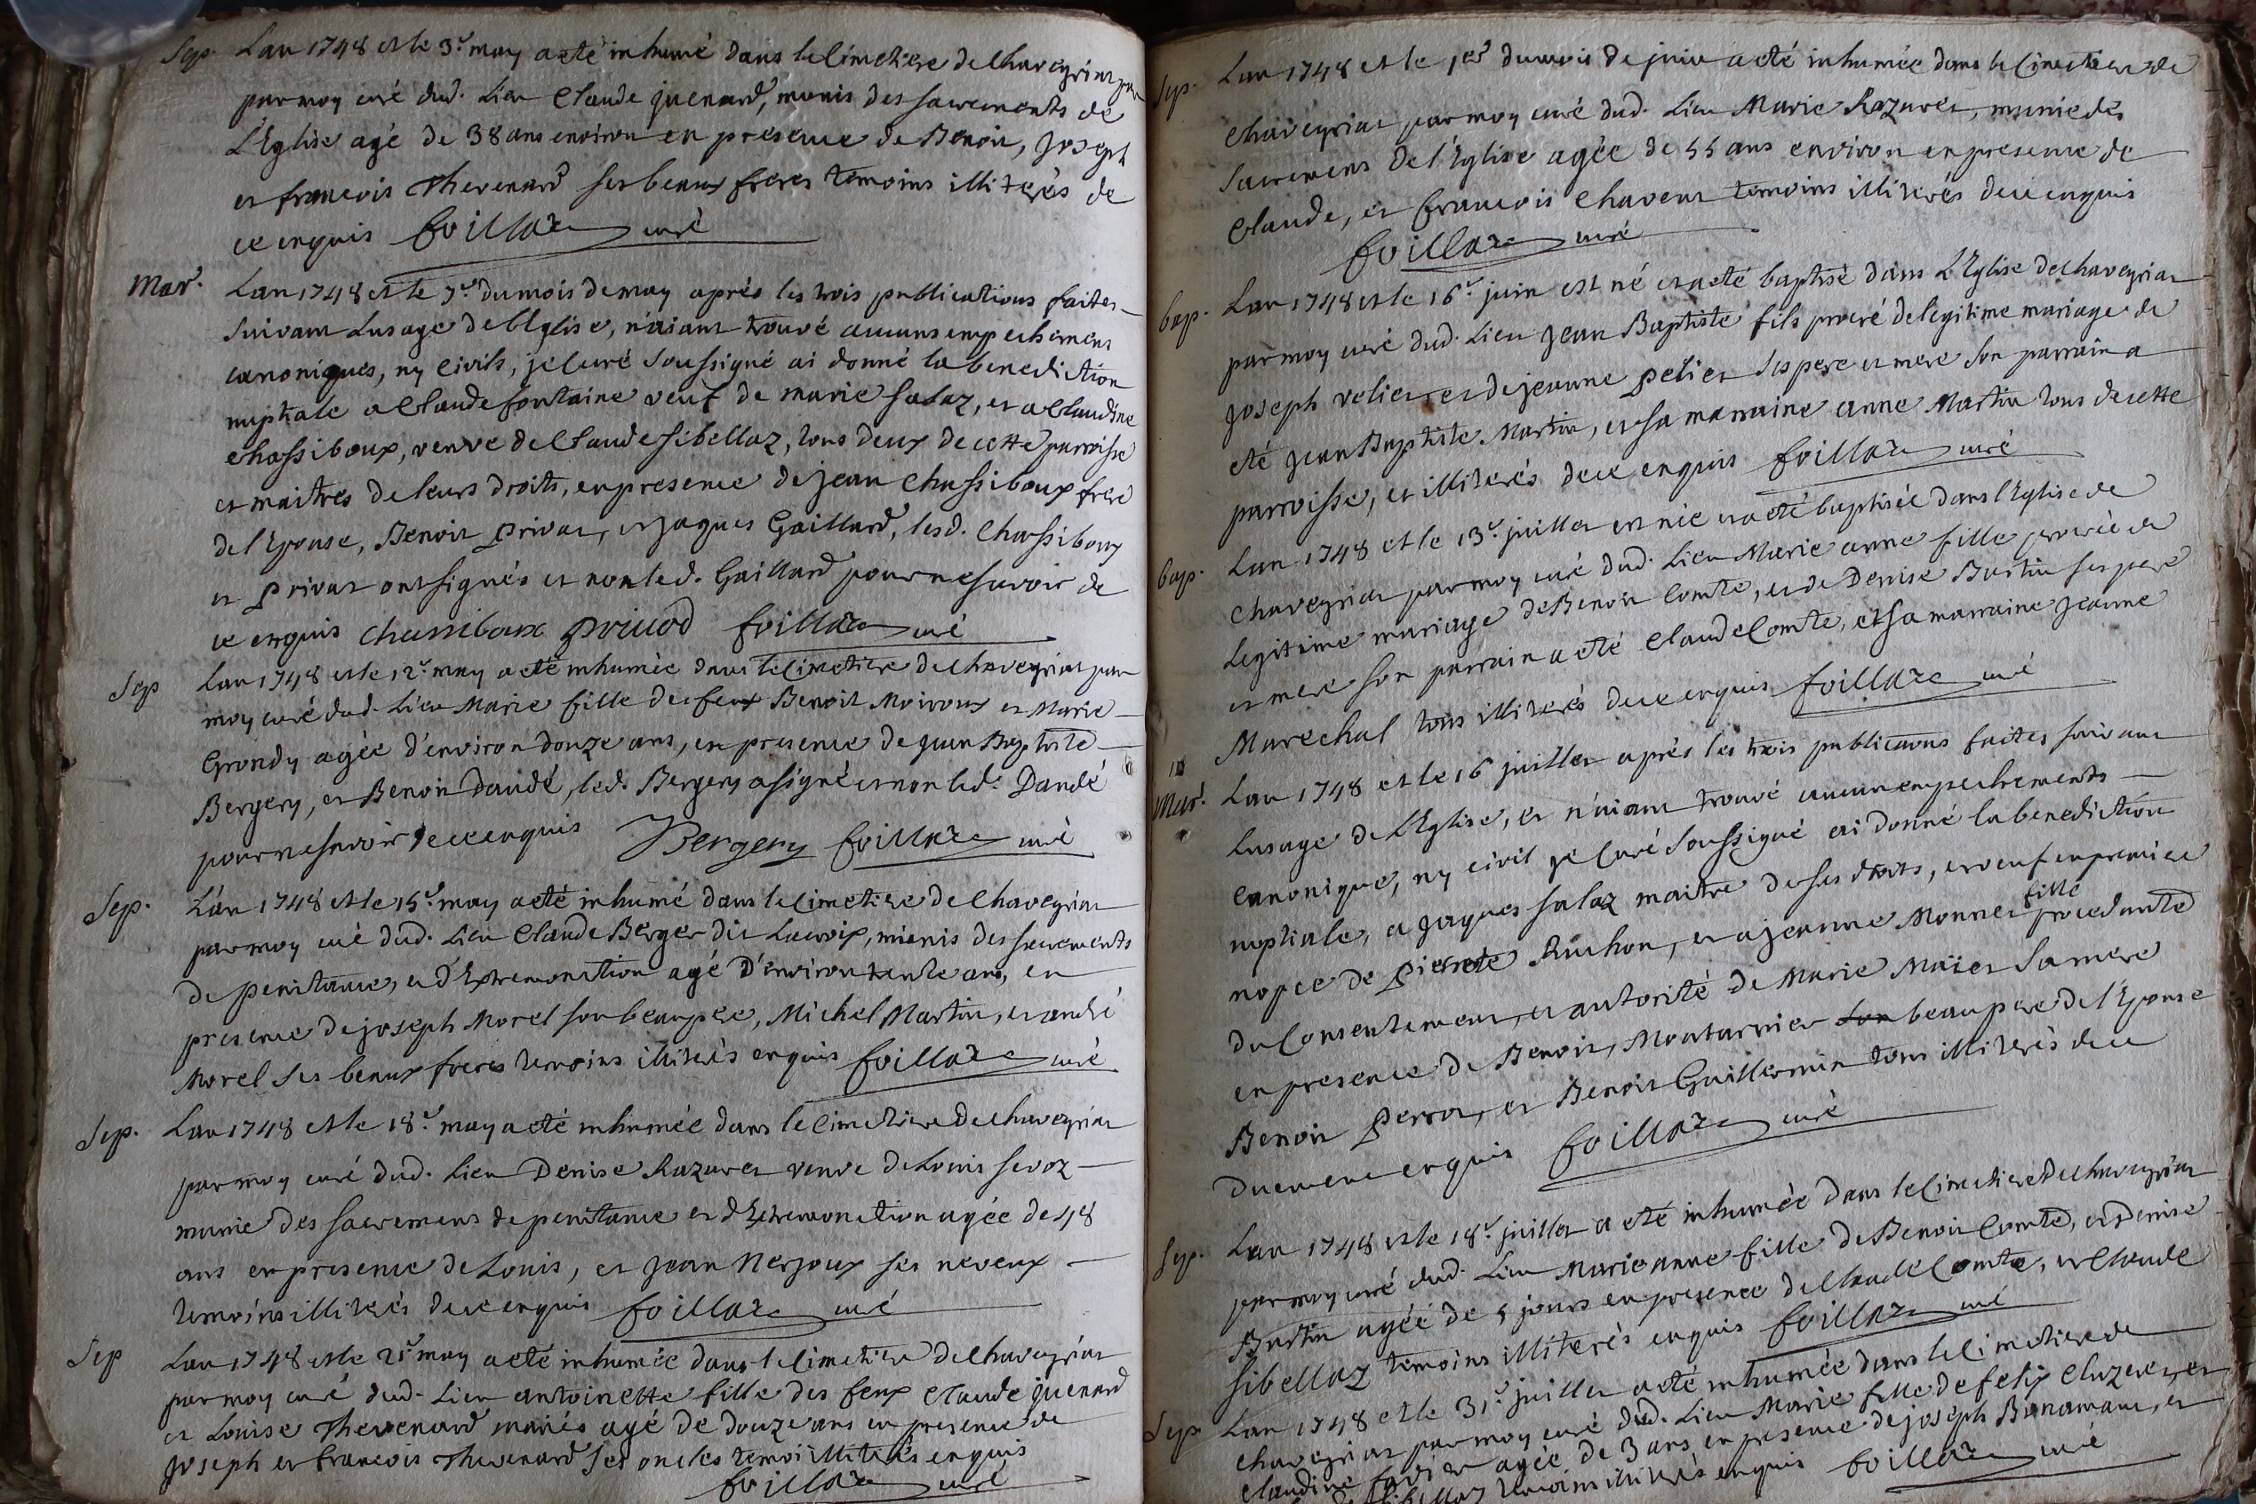 Sep. Lan 1748 et le 3e. may a eté inhumé dans le Cimetiere de Chaveyriat par
par moy curé dud. Lieu Claude juenard, munis des sacrements de
L'Eglise agé de 38 ans environ en présence de Benoit, Joseph
et françois Thevenard ses beaux freres temoins illiterés de
ce enquis foillaz curé
Mar. Lan 1748 et le 7e. du mois de may aprés les trois publications faites
suivant Lusage de l'Eglise, n'aiant trouvé aucuns empechemens
canoniques, ny civils, je Curé soussigné ai donné la benediction
nuptiale a Claude fontaine veuf de marie salaz, et a Claudine
Chassiboux, veuve de Claude sibellaz, tous deux de cette parroisse
et maitres de leurs droits, en presence de jean Chassiboux frere
de l'Epouse, Benoit privat, et jaques Gaillard, lesd. Chassiboux
et privat ont signés et non led. Gaillard pour ne savoir de
ce enquis chassiboux privod foillaz curé
Sep Lan 1748 et le 12e. may a eté inhumée dans le Cimetiere de chaveyriat par
moy curé dud. Lieu Marie fille de feux Benoit Moiroux et Marie
Grondy agée d'environ douze ans, en presence de jean Baptiste
Bergery, et Benoit Dandé, led. Bergery a signé et non led. Dandé
pour ne savoir de ce enquis Bergery foillaz curé
Sep. Lan 1748 et le 15e. may a eté inhumé dans le Cimetiere de Chaveyriat
par moy curé dud. Lieu Claude Berger dit Lacroix, munis des sacrements
de penitance, et d'Extremonction agé d'environ trente ans, en
presence de joseph Morel son beaupere, Michel Martin, et andré
Morel ses beaux freres temoins illiterés enquis foillaz curé
Sep. Lan 1748 et le 18e. may a eté inhumée dans le Cimetiere de Chaveyriat
par moy curé dud. Lieu Denise Razuret veuve de Louis sevoz
munie des sacremens de penitance et d'Extremonction agée de 48
ans en presence de Louis, et jean Nerjoux ses neveux
temoins illiterés de ce enquis foillaz curé
Sep Lan 1748 et le 21e may a eté inhumée dans le Cimetiere de Chaveyriat
par moy curé dud. Lieu antoinette fille des feux Claude juenard
et Louise Thevenard mariés agé de douze ans en presence de
joseph et françois Thevenard ses oncles temoi illiterés enquis
foillaz curé
Sep. Lan 1748 et le 1er du mois de juin a eté inhumée dans le Cimetiere de
Chaveyriat par moy curé dud. Lieu Marie Razuret, munie des
sacremens de l'Eglise agée de 55 ans environ en presence de
Claude, et françois Chavent temoins illiterés de ce enquis
foillaz curé
bap. Lan 1748 et le 16e. juin est né et a eté baptisé dans L'Eglise de chaveyriat
par moy curé dud. Lieu Jean Baptiste fils procréé de legitime mariage de
joseph velier et de jeanne pelier ses pere et mere son parrain a
eté jean Baptiste Martin, et sa marraine anne Martin tous de cette
parroisse, et illiterés de ce enquis foillaz curé
bap. Lan 1748 et le 13e. juillet est née et a eté baptisée dans l'Eglise de
Chaveyriat par moy curé dud. Lieu Marie anne fille procréée de
Legitime mariage de Benoit Comte, et de Denise Burtin ses pere
et mere son parrain a eté Claude Comte, et sa marraine jeanne
Marechal tous illiterés de ce enquis foillaz curé
Mar. Lan 1748 et le 16 juillet aprés les trois publications faites suivant
Lusage de L'Eglise, et n'aiant trouvé aucun empechements
Canonique, ny civil je Curé soussigné ai donné la benediction
nuptiale, a jaques salaz maitre de ses droits, et veuf en premiere
nopce de pierrete Ruchon, et a jeanne Monnet fille procedante
du Consentement, et autorité de Marie Maïet sa mere
en presence de Benoit, Montarnier son beaupere de l'Epouse
Benoit perrot, et Benoit Guillermin tous illiterés de ce
duement enquis foillaz curé
Sep. Lan 1748 et le 18e. juillet a eté inhumée dans le Cimetiere de chaveyriat
par moy curé dud. Lieu Marie anne fille de Benoit Comte, et Denise
Burtin agée de 5 jours en presence de Claude Comte, et Claude
sibellaz temoins illiterés enquis foillaz curé
Sep Lan 1748 et le 31e. juillet a eté inhumée dans le Cimetiere de
chaveyriat par moy curé dud. Lieu Marie fille de felix Cluzet, et
Claudine agée de 3 ans en presence de joseph Banamant, et
sibellaz temoins illiterés enquis foillaz curé